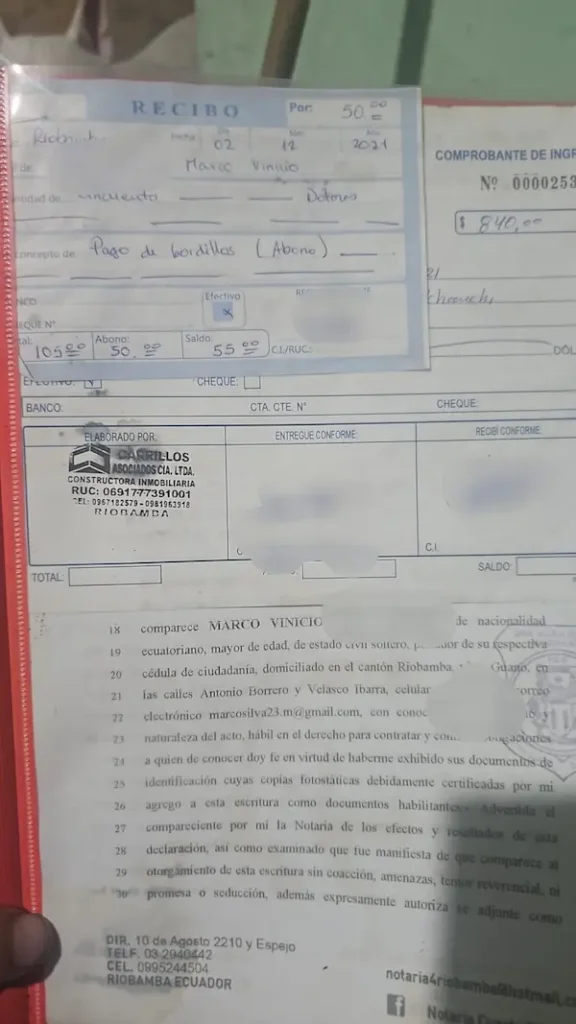 RECIBO
Por: 50.00
Riobamba
Fecha 02 12 2021
de: Marco Vinicio
cincuenta Dolares
concepto de: Pago de bordillos (Abono)
Efectivo x
105.00 Abono: 50.00 Saldo: 55.00 C.I/RUC:
COMPROBANTE DE INGR
Nº 0000253
$ 840,00
EFECTIVO: CHEQUE:
BANCO: CTA. CTE. N° CHEQUE:
ELABORADO POR: ENTREGUE CONFORME RECIBÍ CONFORME
CARRILLOS
ASOCIADOS CIA. LTDA.
CONSTRUCTORA INMOBILIARIA
RUC: 0691777391001
TEL: 0967182579 - 0981963918
RIOBAMBA
C.I.
TOTAL: SALDO:
18 comparece MARCO VINICIO de nacionalidad
19 ecuatoriano, mayor de edad, de estado civil soltero, de su respectiva
20 cédula de ciudadanía, domiciliado en el cantón Riobamba, Guano, en
21 las calles Antonio Borrero y Velasco Ibarra, celular orreo
22 electrónico marcosilva23.m@gmail.com, con conoc y
23 naturaleza del acto, hábil en el derecho para contratar y
24 a quien de conocer doy fe en virtud de haberme exhibido sus documentos de
25 identificación cuyas copias fotostáticas debidamente certificadas por mi
26 agrego a esta escritura como documentos habilitantes. Advertida el
27 compareciente por mi la Notaria de los efectos y resultados de esta
28 declaración, así como examinado que fue manifiesta de que comparece al
29 otorgamiento de esta escritura sin coacción, amenazas, temor reverencial, ni
30 promesa o seducción, además expresamente autoriza se adjunte como
DIR. 10 de Agosto 2210 y Espejo
TELF. 03 2940442
CEL. 0995244504
RIOBAMBA ECUADOR
notaria4riobamba@hotmail.c
Notaría